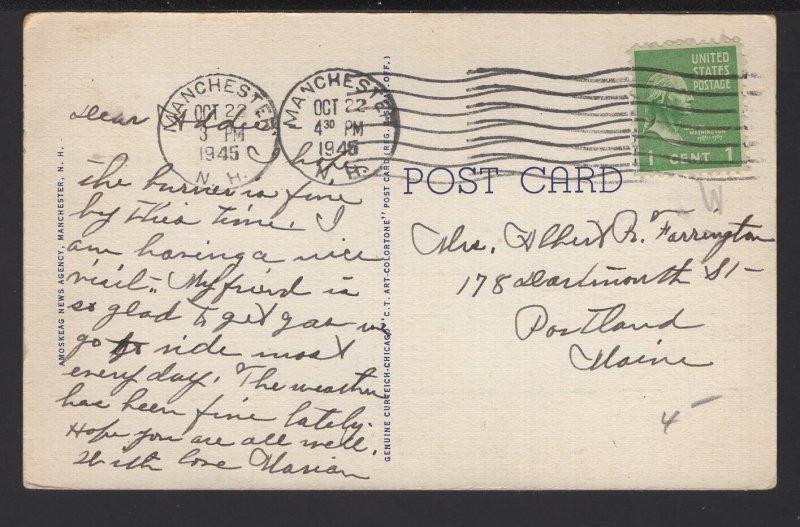 MANCHESTER
OCT 22
3 PM
1945
N. H.
MANCHESTER
OCT 22
4 30 PM
1945
N. H.
UNITED
STATES
POSTAGE
WASHINGTON
1 CENT 1
POST CARD
AMOSKEAG NEWS AGENCY, MANCHESTER, N. H.
GENUINE CURTEICH-CHICAGO "C.T. ART-COLORTONE" POST CARD (REG. U.S. PAT. OFF.)
Dear Addie I hope
the burner is fine
by this time. I
am having a nice
visit. My friend is
so glad to get gas we
go to ride most
every day. The weather
has been fine lately.
Hope you are all well.
With love Marian
Mrs. Albert R. Farrington
178 Dartmouth St
Portland
Maine
4